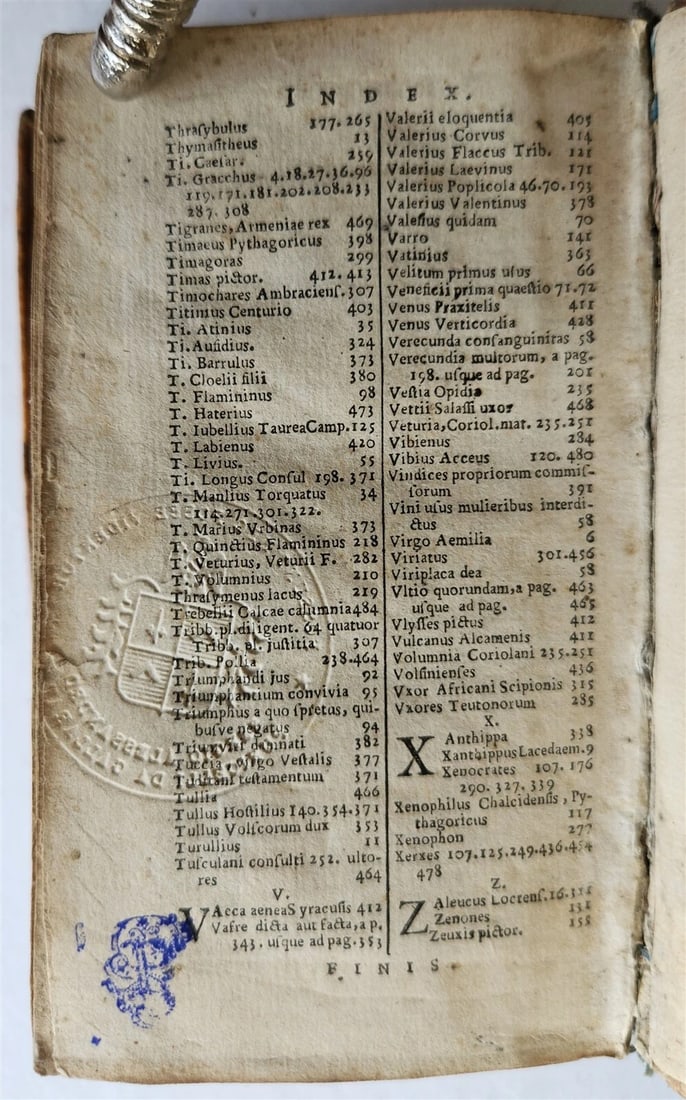 INDEX.
Thraſybulus 177.265
Thymaſitheus 13
Ti. Caeſar. 259
Ti. Gracchus 4.18.27.36.96
119.171.181.202.208.233
287.308
Tigranes, Armeniae rex 469
Timaeus Pythagoricus 398
Timagoras 299
Timas pictor. 412.413
Timochares Ambracienſ.307
Titinius Centurio 403
Ti. Atinius 35
Ti. Aufidius. 324
Ti. Barrulus 373
T. Cloelii filii 380
T. Flamininus 98
T. Haterius 473
T. Iubellius TaureaCamp.125
T. Labienus 420
T. Livius. 55
Ti. Longus Conſul 198.371
T. Manlius Torquatus 34
114.271.301.322.
T. Marius Vrbinas 373
T. Quinctius Flamininus 218
T. Veturius, Veturii F. 282
T. Volumnius 210
Thraſymenus lacus 219
Trebellii Calcae calumnia484
Tribb.pl.diligent. 64 quatuor
Tribb. pl. juſtitia 307
Trib. Pollia 238.464
Triumphandi jus 92
Triumphantium convivia 95
Triumphus a quo ſpretus, qui-
buſve negatus 94
Triumviri damnati 382
Tuccia, virgo Veſtalis 377
Tuditani teſtamentum 371
Tullia 466
Tullus Hoſtilius 140.354.371
Tullus Volſcorum dux 353
Turullius 11
Tuſculani conſulti 252. ulto-
res 464
V.
VAcca aeneaS yracuſis 412
Vafre dicta aut facta, a p.
343. uſque ad pag.353
Valerii eloquentia 405
Valerius Corvus 114
Valerius Flaccus Trib. 121
Valerius Laevinus 171
Valerius Poplicola 46.70.193
Valerius Valentinus 378
Valeſius quidam 70
Varro 141
Vatinius 363
Velitum primus uſus 66
Veneficii prima quaeſtio 71.72
Venus Praxitelis 411
Venus Verticordia 428
Verecunda conſanguinitas 58
Verecundia multorum, a pag.
198. uſque ad pag. 201
Veſtia Opidia 235
Vettii Salaſſi uxor 468
Veturia,Coriol.mat. 235.251
Vibienus 284
Vibius Acceus 120. 480
Vindices propriorum commiſ-
ſorum 391
Vini uſus mulieribus interdi-
ctus 58
Virgo Aemilia 6
Viriatus 301.456
Viriplaca dea 58
Vltio quorundam,a pag. 463
uſque ad pag. 465
Vlyſſes pictus 412
Vulcanus Alcamenis 411
Volumnia Coriolani 235.251
Volſinienſes 436
Vxor Africani Scipionis 315
Vxores Teutonorum 285
X.
XAnthippa 338
XanthippusLacedaem.9
Xenocrates 107. 176
290. 327. 339
Xenophilus Chalcidenſis, Py-
thagoricus 117
Xenophon 277
Xerxes 107.125.249.436.454
478
Z.
ZAleucus Locrenſ.16.
Zenones 131
Zeuxis pictor. 155
FINIS.